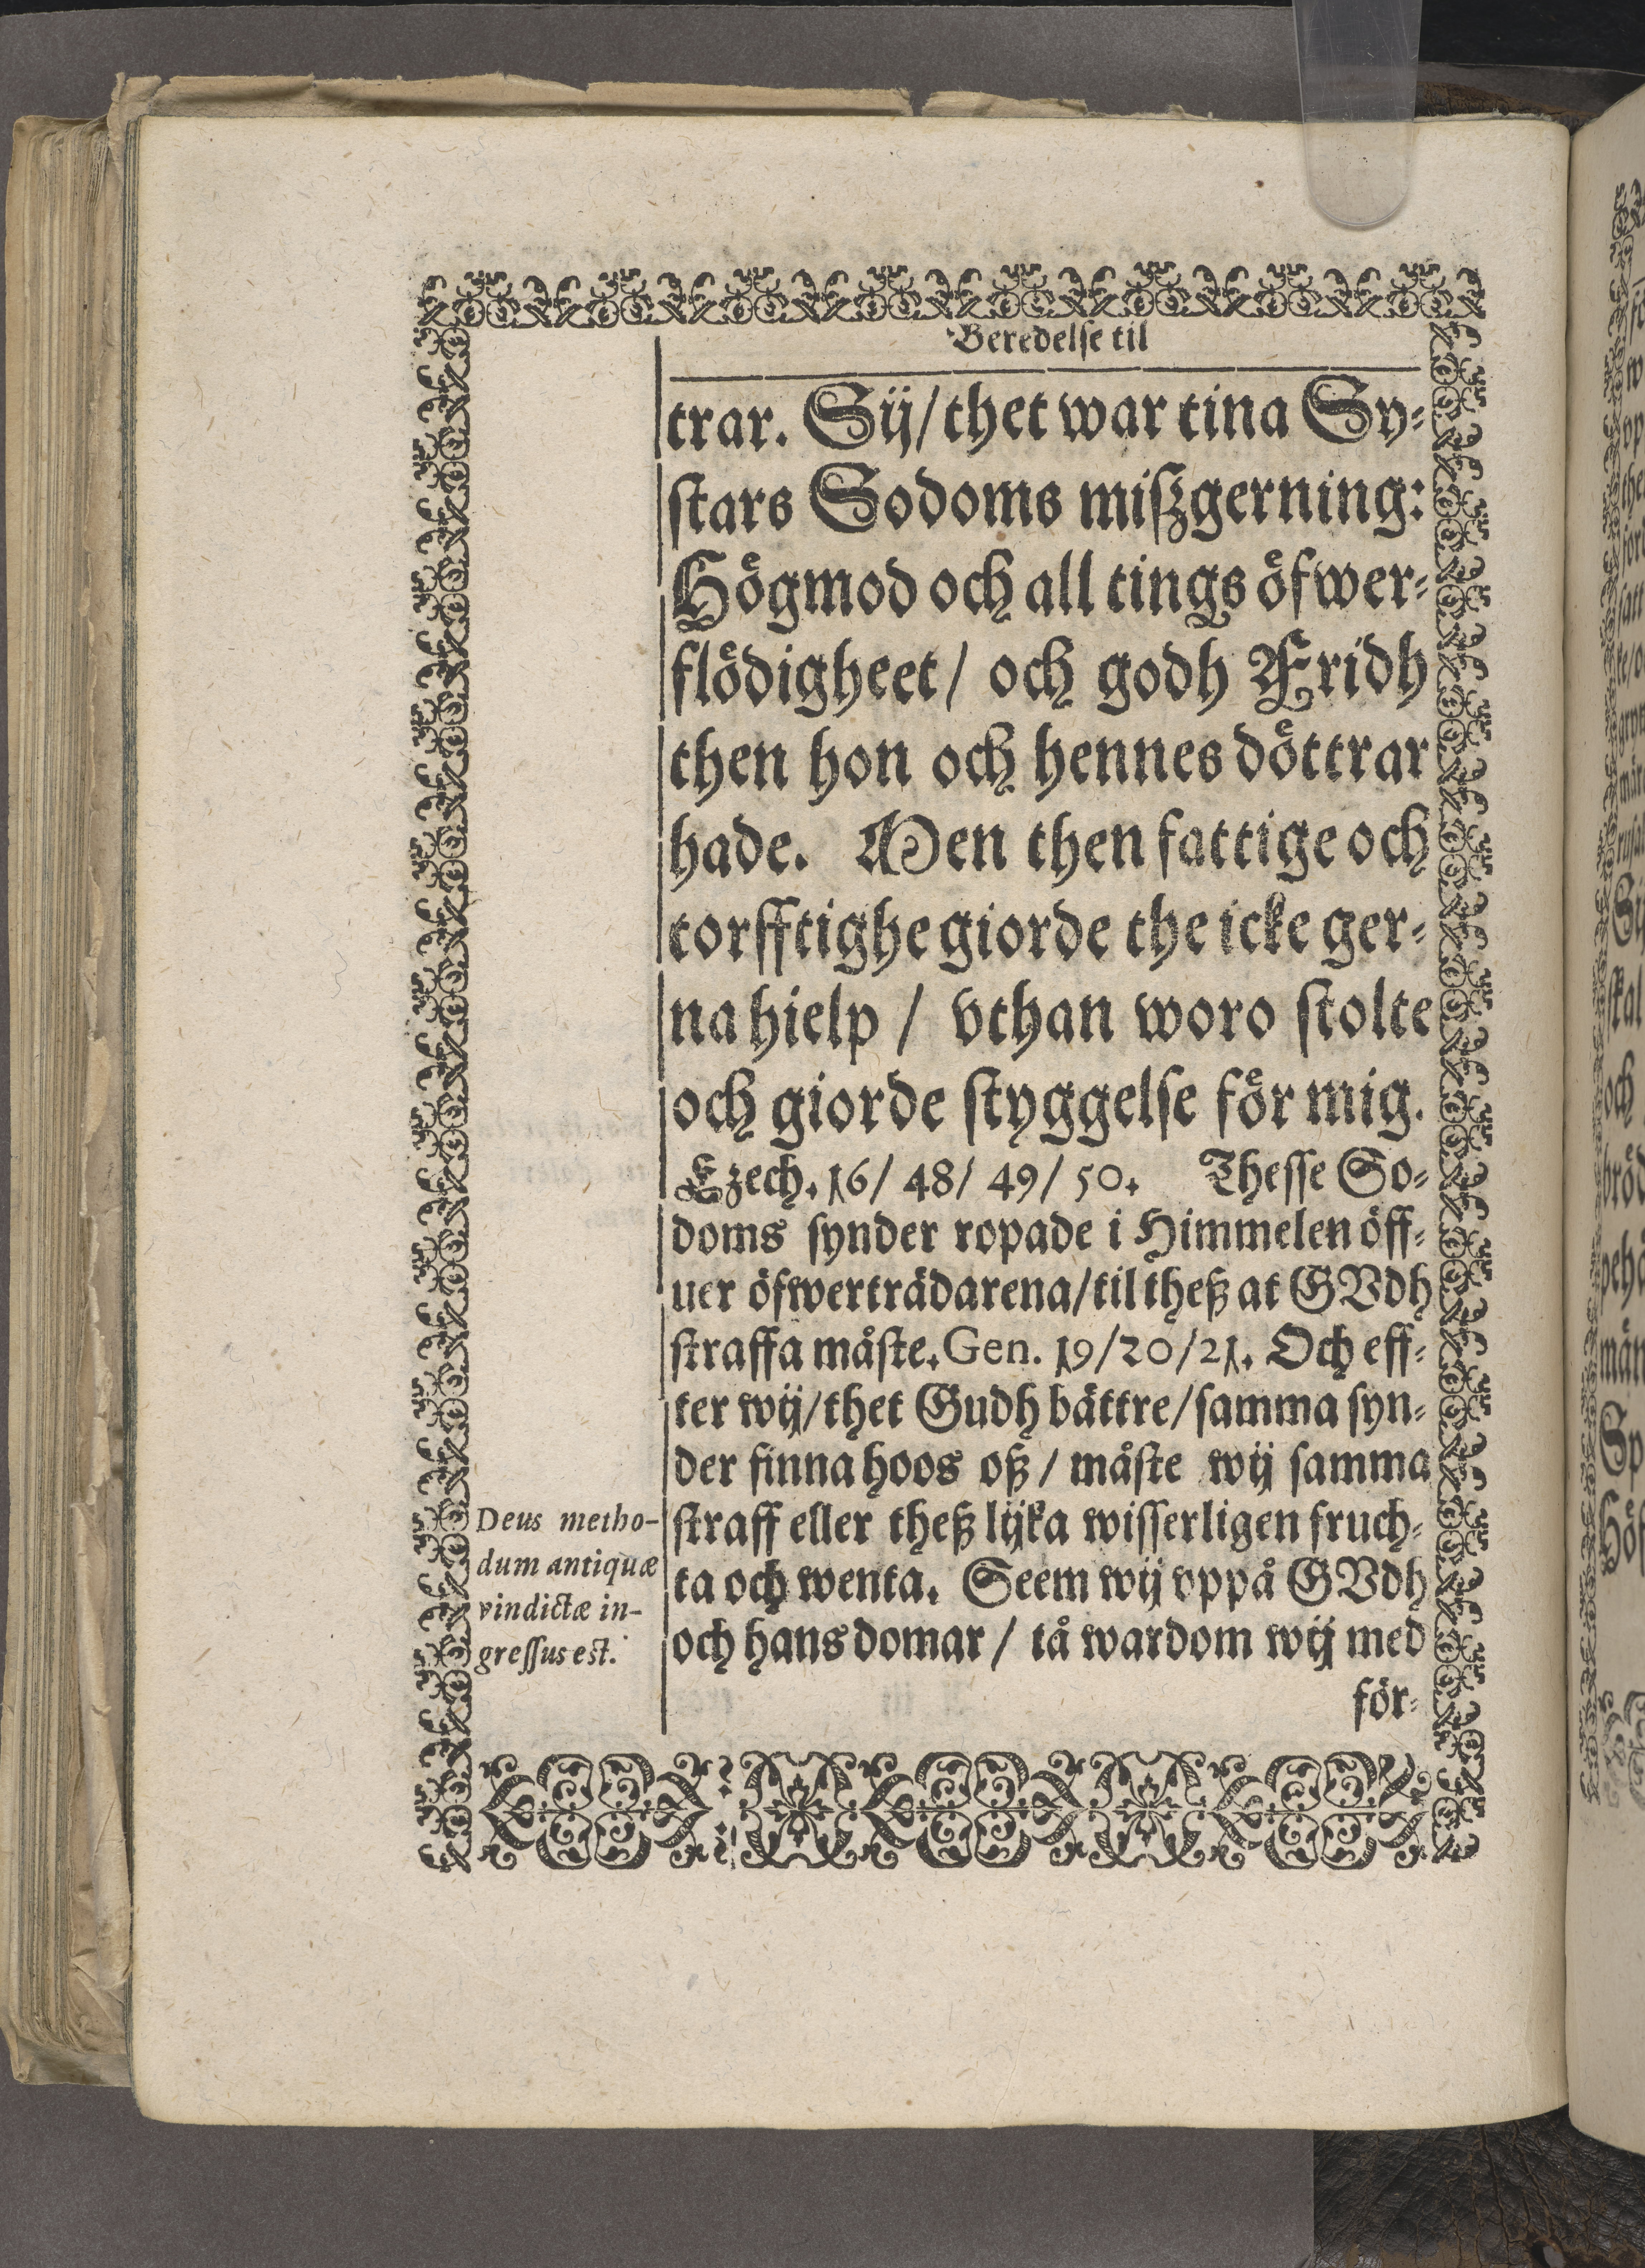 Beredelse til
trar. Sij/thet war tina Sy-
stars Sodoms miszgerning:
Högmod och all tings öfwer-
flödigheet/ och godh Fridh
then hon och hennes döttrar
hade. Men then fattige och
torfftighe giorde the icke ger-
na hielp / vthan woro stolte
och giorde styggelse för mig.
Ezech. 16/ 48/ 49/ 50. Thesse So-
doms synder ropade i Himmelen öff-
uer öfwerträdarena/til theß at GVdh
straffa måste. Gen. 19/20/21. Och eff-
ter wij/thet Gudh bättre/samma syn-
der finna hoos oß / måste wij samma
straff eller theß lijka wisserligen fruch-
ta och wenta. Seem wij vppå GVdh
och hans domar / tå wardom wij med
för-
Deus metho-
dum antiquæ
vindictæ in-
gressus est.